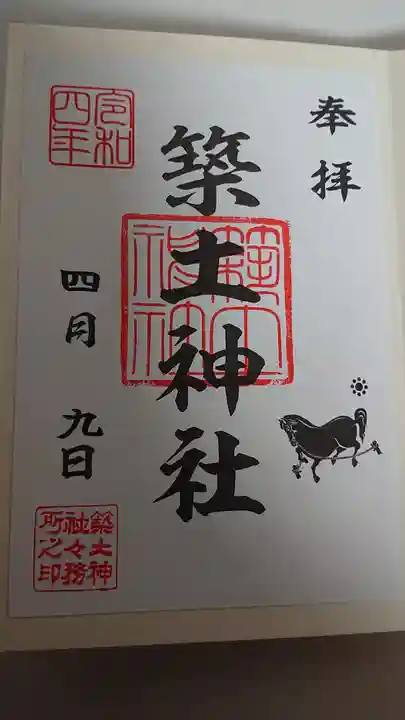 奉拝
築土神社
築土神社
令和四年
四月九日
築土神社々務所之印